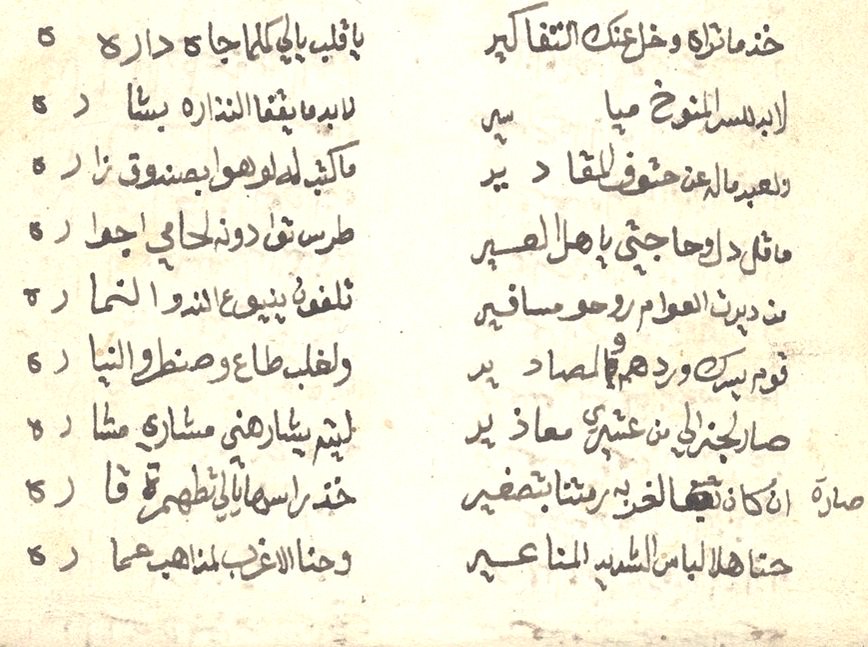 خذ ماتراه وخل عنك التفاكير يا قلب يالي كلما جاه داره ه
لابد للسر المنوخ ميا سير لابد ما يقفا النذاره بشا ر ه
ولعبد ماله عن حتوف المقا د ير ماكتب له لو هوا بصندوق زا ر ه
ما قل دل وحاجتي ياهل العسير طرس توا دونه لحامي اجوا ر ه
من ديرت العوام روحو مسافير تلفون ينبوع الندو النما ر ه
قوم يسرك وردهم والمصا د ير ولغلب طاع وصنطر والنيا ر ه
صار لجنرالي من عشيري معاذ ير ليتم يشار هني مشاري مشا ر ه
ان كان الغربه رمتنا بتصغير خذ راسها يالي تظهر قا ر ه
صارة
حنا هلا لباس الشديد المناعسير وحنا الاغرب لمذاهب عما ر ه